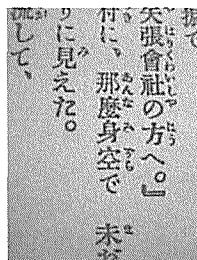 矢張會社の方へ。』
村に、那麼身空で　未だ
りに見えた。
流して、